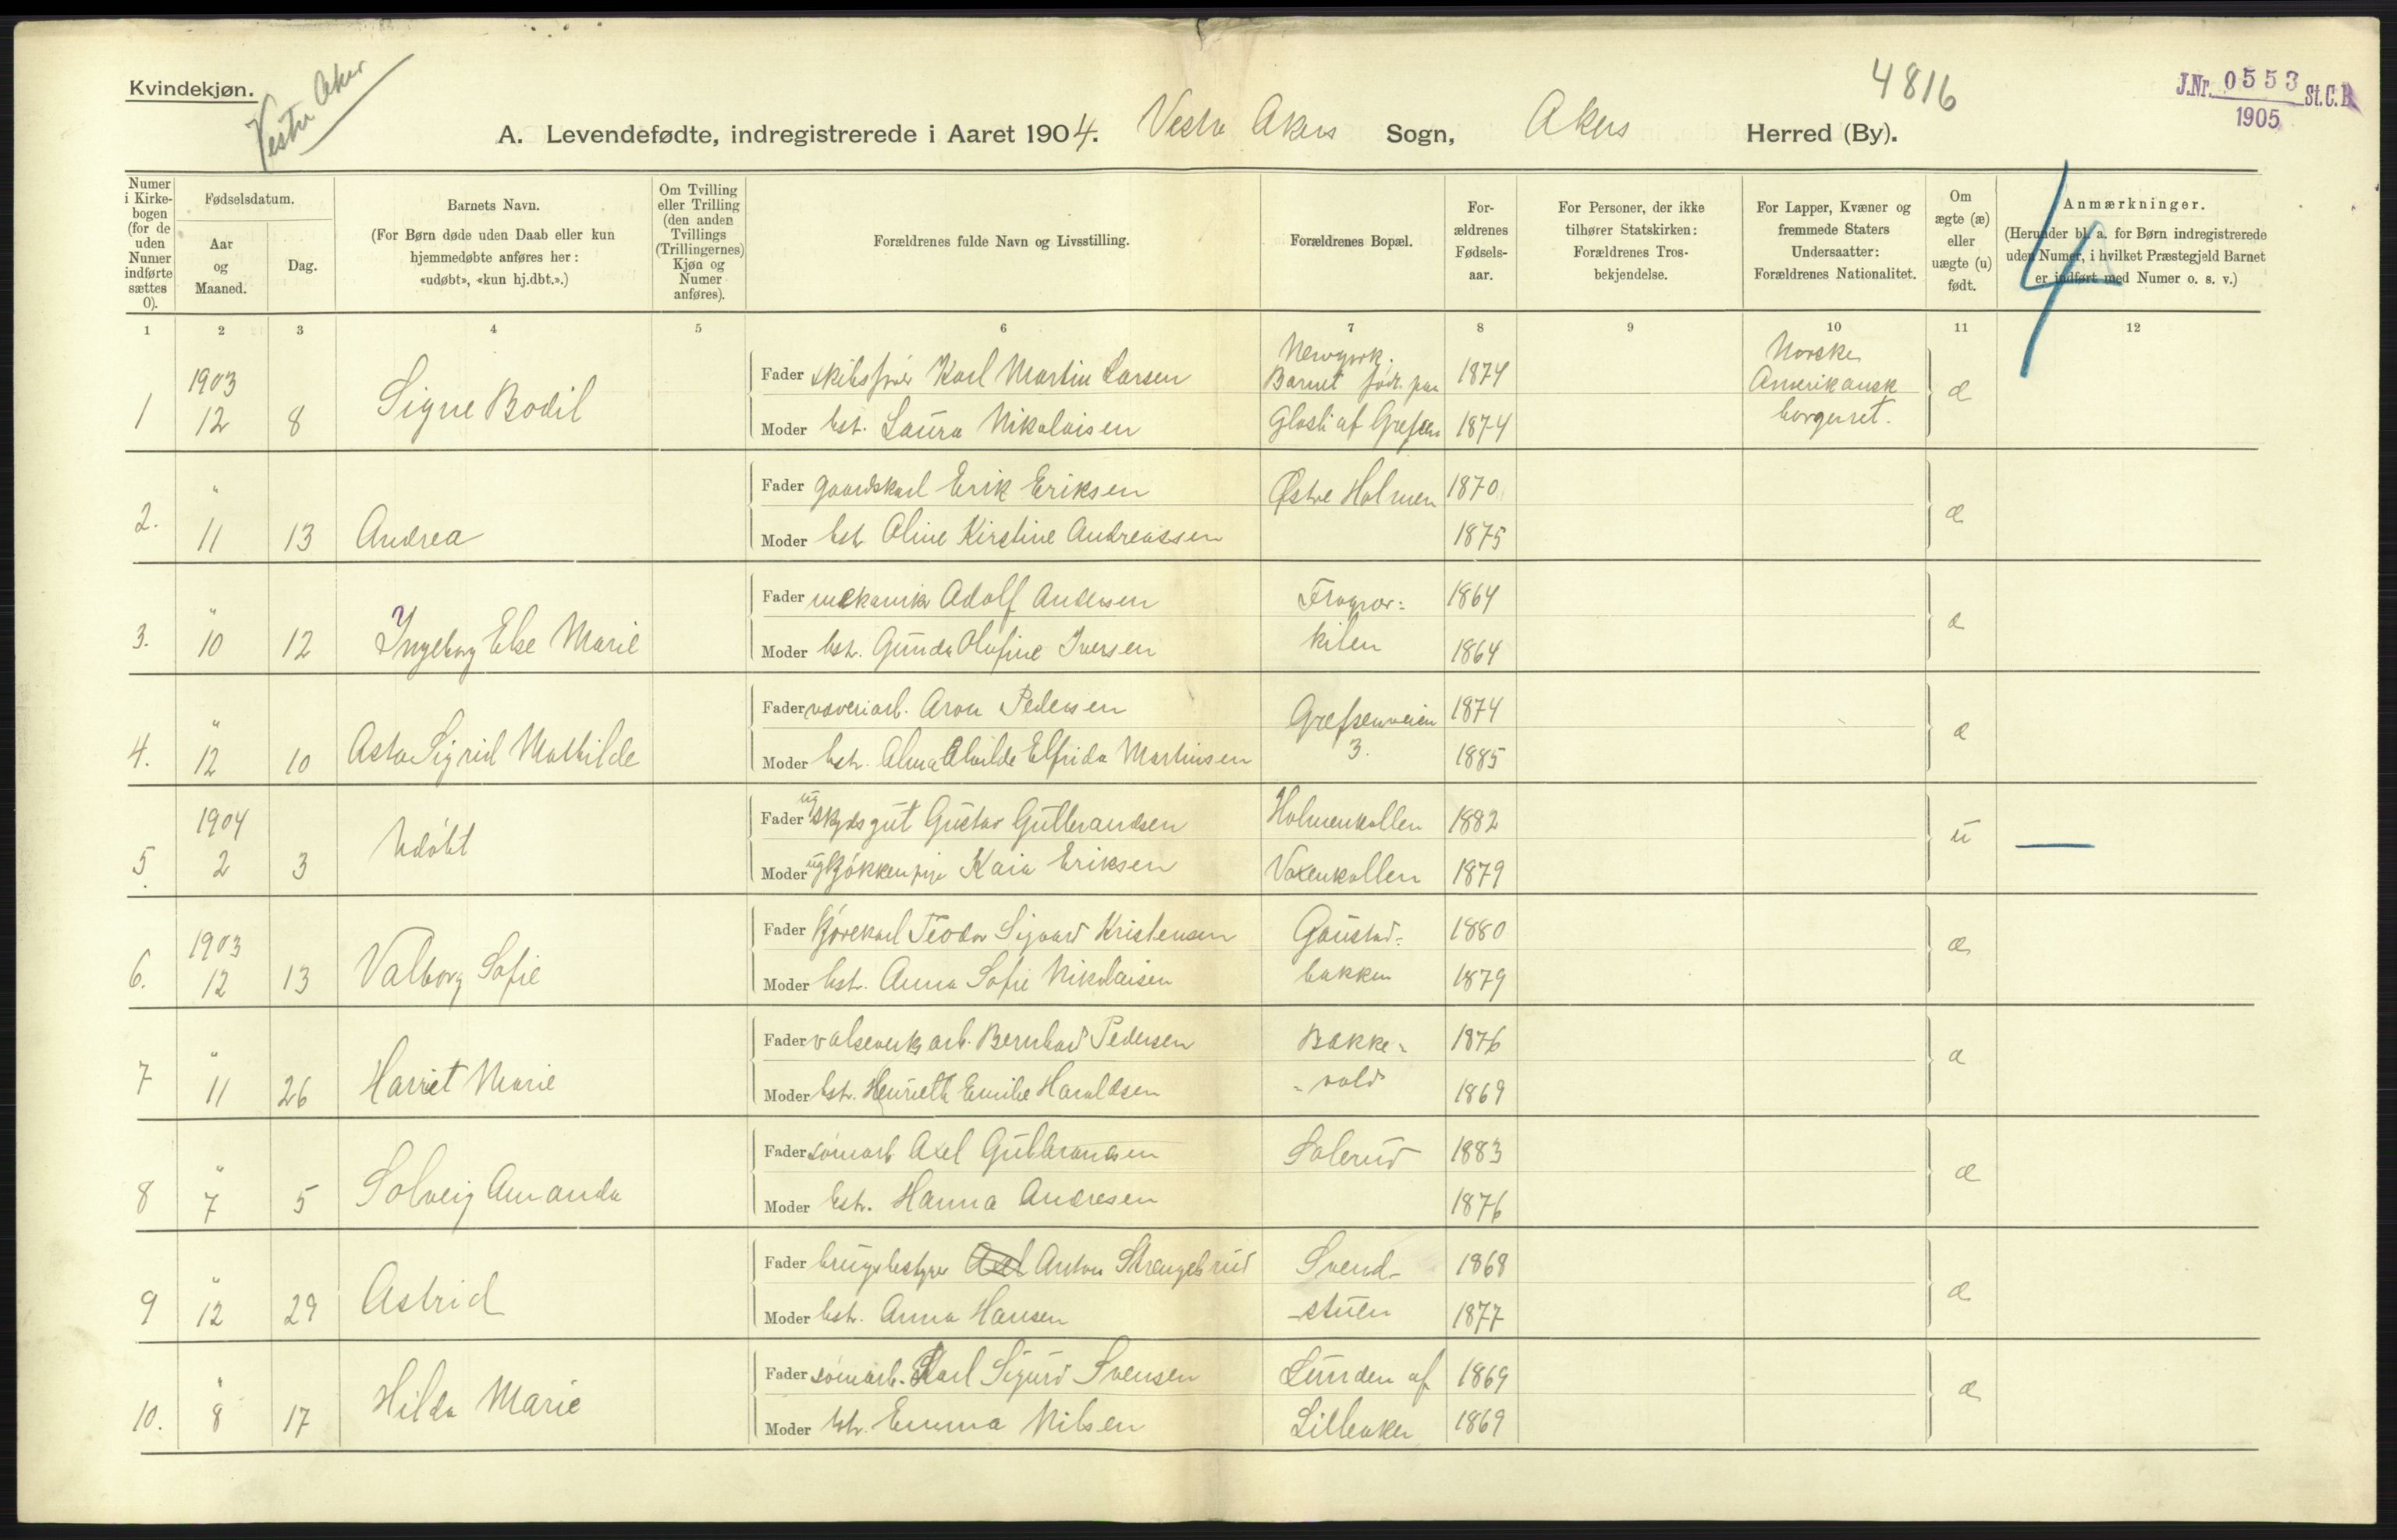 Kvindekjøn.
Vestre Aker
4816
J.Nr. 0553 St.C.B.
1905
A. Levendefødte, indregistrerede i Aaret 1904. Vestre Akers Sogn, Akers Herred (By).
Numer i Kirkebogen (for de uden Numer indførte sættes 0).
Fødselsdatum.
Aar og Maaned.
Dag.
Barnets Navn.
(For Børn døde uden Daab eller kun hjemmedøbte anføres her: «udøbt», «kun hj.dbt.».)
Om Tvilling eller Trilling (den anden Tvillings (Trillingernes) Kjøn og Numer anføres).
Forældrenes fulde Navn og Livsstilling.
Forældrenes Bopæl.
Forældrenes Fødselsaar.
For Personer, der ikke tilhører Statskirken: Forældrenes Trosbekjendelse.
For Lapper, Kvæner og fremmede Staters Undersaatter: Forældrenes Nationalitet.
Om ægte (æ) eller uægte (u) født.
Anmærkninger.
(Herunder bl. a. for Børn indregistrerede uden Numer, i hvilket Præstegjeld Barnet er indført med Numer o. s. v.)
4
1 2 3 4 5 6 7 8 9 10 11 12
1 1903 12 8 Signe Bodil
Fader skibsfører Karl Martin Larsen Newyork. Barnet født paa 1874 Norske Amerikansk æ
Moder hst. Laura Nikolaisen Glasli af Grefsen 1874 borgerret.
2. " 11 13 Andrea
Fader gaardskarl Erik Eriksen Østre Holmen 1870 æ
Moder hst. Oline Kirstine Andreassen 1875
3. " 10 12 Ingeborg Else Marie
Fader mekaniker Adolf Andersen Frogner= 1864 æ
Moder hst. Gunda Olufine Iversen kilen 1864
4. " 12 10 Asta Sigrid Mathilde
Fader væveriarb. Aron Pedersen Grefsenveien 1874 æ
Moder hst. Alma Alvilde Elfrida Martinsen 3. 1885
5. 1904 2 3 Udøbt
Fader ug skydsgut Gustav Gulbrandsen Holmenkollen 1882 u
Moder ug kjøkkenpige Kaia Eriksen Voxenkollen 1879
6. 1903 12 13 Valborg Sofie
Fader kjørekarl Teodor Sigvard Kristensen Gaustad= 1880 æ
Moder hst. Anna Sofie Nikolaisen bakken 1879
7 " 11 26 Harriet Marie
Fader valseverksarb. Bernhard Pedersen Bakke= 1876 æ
Moder hst. Henriette Emilie Haraldsen vold 1869
8 " 7 5 Solveig Amanda
Fader sømarb Axel Gulbrandsen Solerud 1883 æ
Moder hst. Hanna Andresen 1876
9 " 12 29 Astrid
Fader brugsbestyrer Axel Anton Strengelsrud Svend- 1868 æ
Moder hst. Anna Hansen -stuen 1877
10. " 8 17 Hilda Marie
Fader sømarb. Karl Sigurd Svensen Lunden af 1869 æ
Moder hst. Emma Nilsen Lilleaker 1869